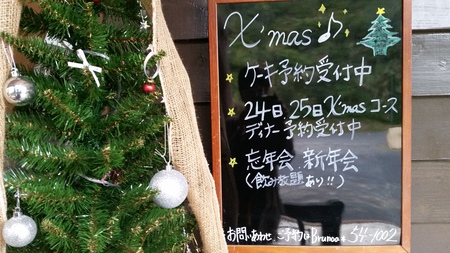 X'mas♪
ケーキ予約受付中
24日.25日X'masコース
ディナー予約受付中
忘年会.新年会
(飲み放題あり!!)
お問いあわせ.ご予約は Brunoa 54-1002